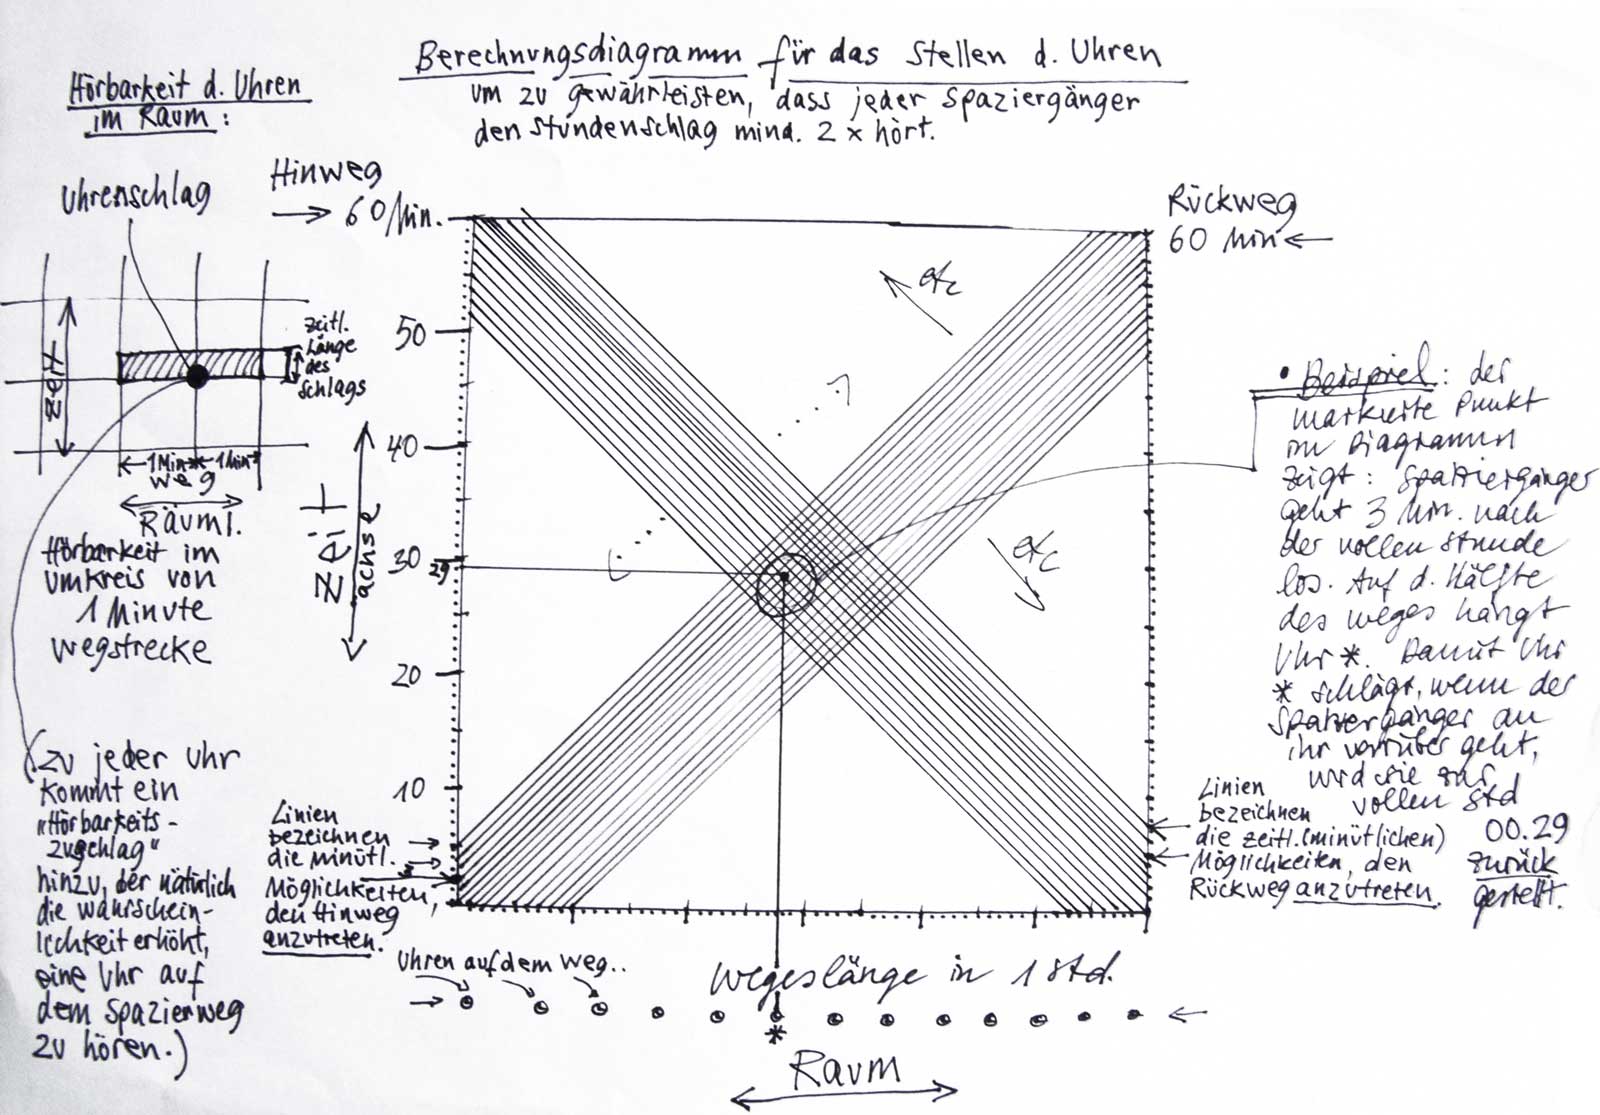 Berechnungsdiagramm für das Stellen d. Uhren
um zu gewährleisten, dass jeder Spaziergänger
den Stundenschlag mind. 2 x hört.
Hörbarkeit d. Uhren
im Raum:
Uhrenschlag
Zeit
zeitl.
Länge
des
Schlags
1 Min
1 Min
weg
Räuml.
Hörbarkeit im
Umkreis von
1 Minute
Wegstrecke
(zu jeder Uhr
kommt ein
"Hörbarkeits-
zuschlag"
hinzu, der natürlich
die Wahrschein-
lichkeit erhöht,
eine Uhr auf
dem Spazierweg
zu hören.)
Hinweg
60 Min.
50
40
30
29
20
10
Zeit
achse
Rückweg
60 Min
etc
etc
• Beispiel: der
markierte Punkt
im Diagramm
zeigt: Spaziergänger
geht 3 Min. nach
der vollen Stunde
los. Auf d. Hälfte
des Weges hängt
Uhr *. Damit Uhr
* schlägt, wenn der
Spaziergänger an
ihr vorrüber geht,
wird sie zur
vollen Std
00.29
zurück
gestellt.
Linien
bezeichnen
die minütl.
Möglichkeiten,
den Hinweg
anzutreten.
Linien
bezeichnen
die zeitl. (minütlichen)
Möglichkeiten, den
Rückweg anzutreten.
Uhren auf dem Weg..
Wegeslänge in 1 Std.
*
Raum